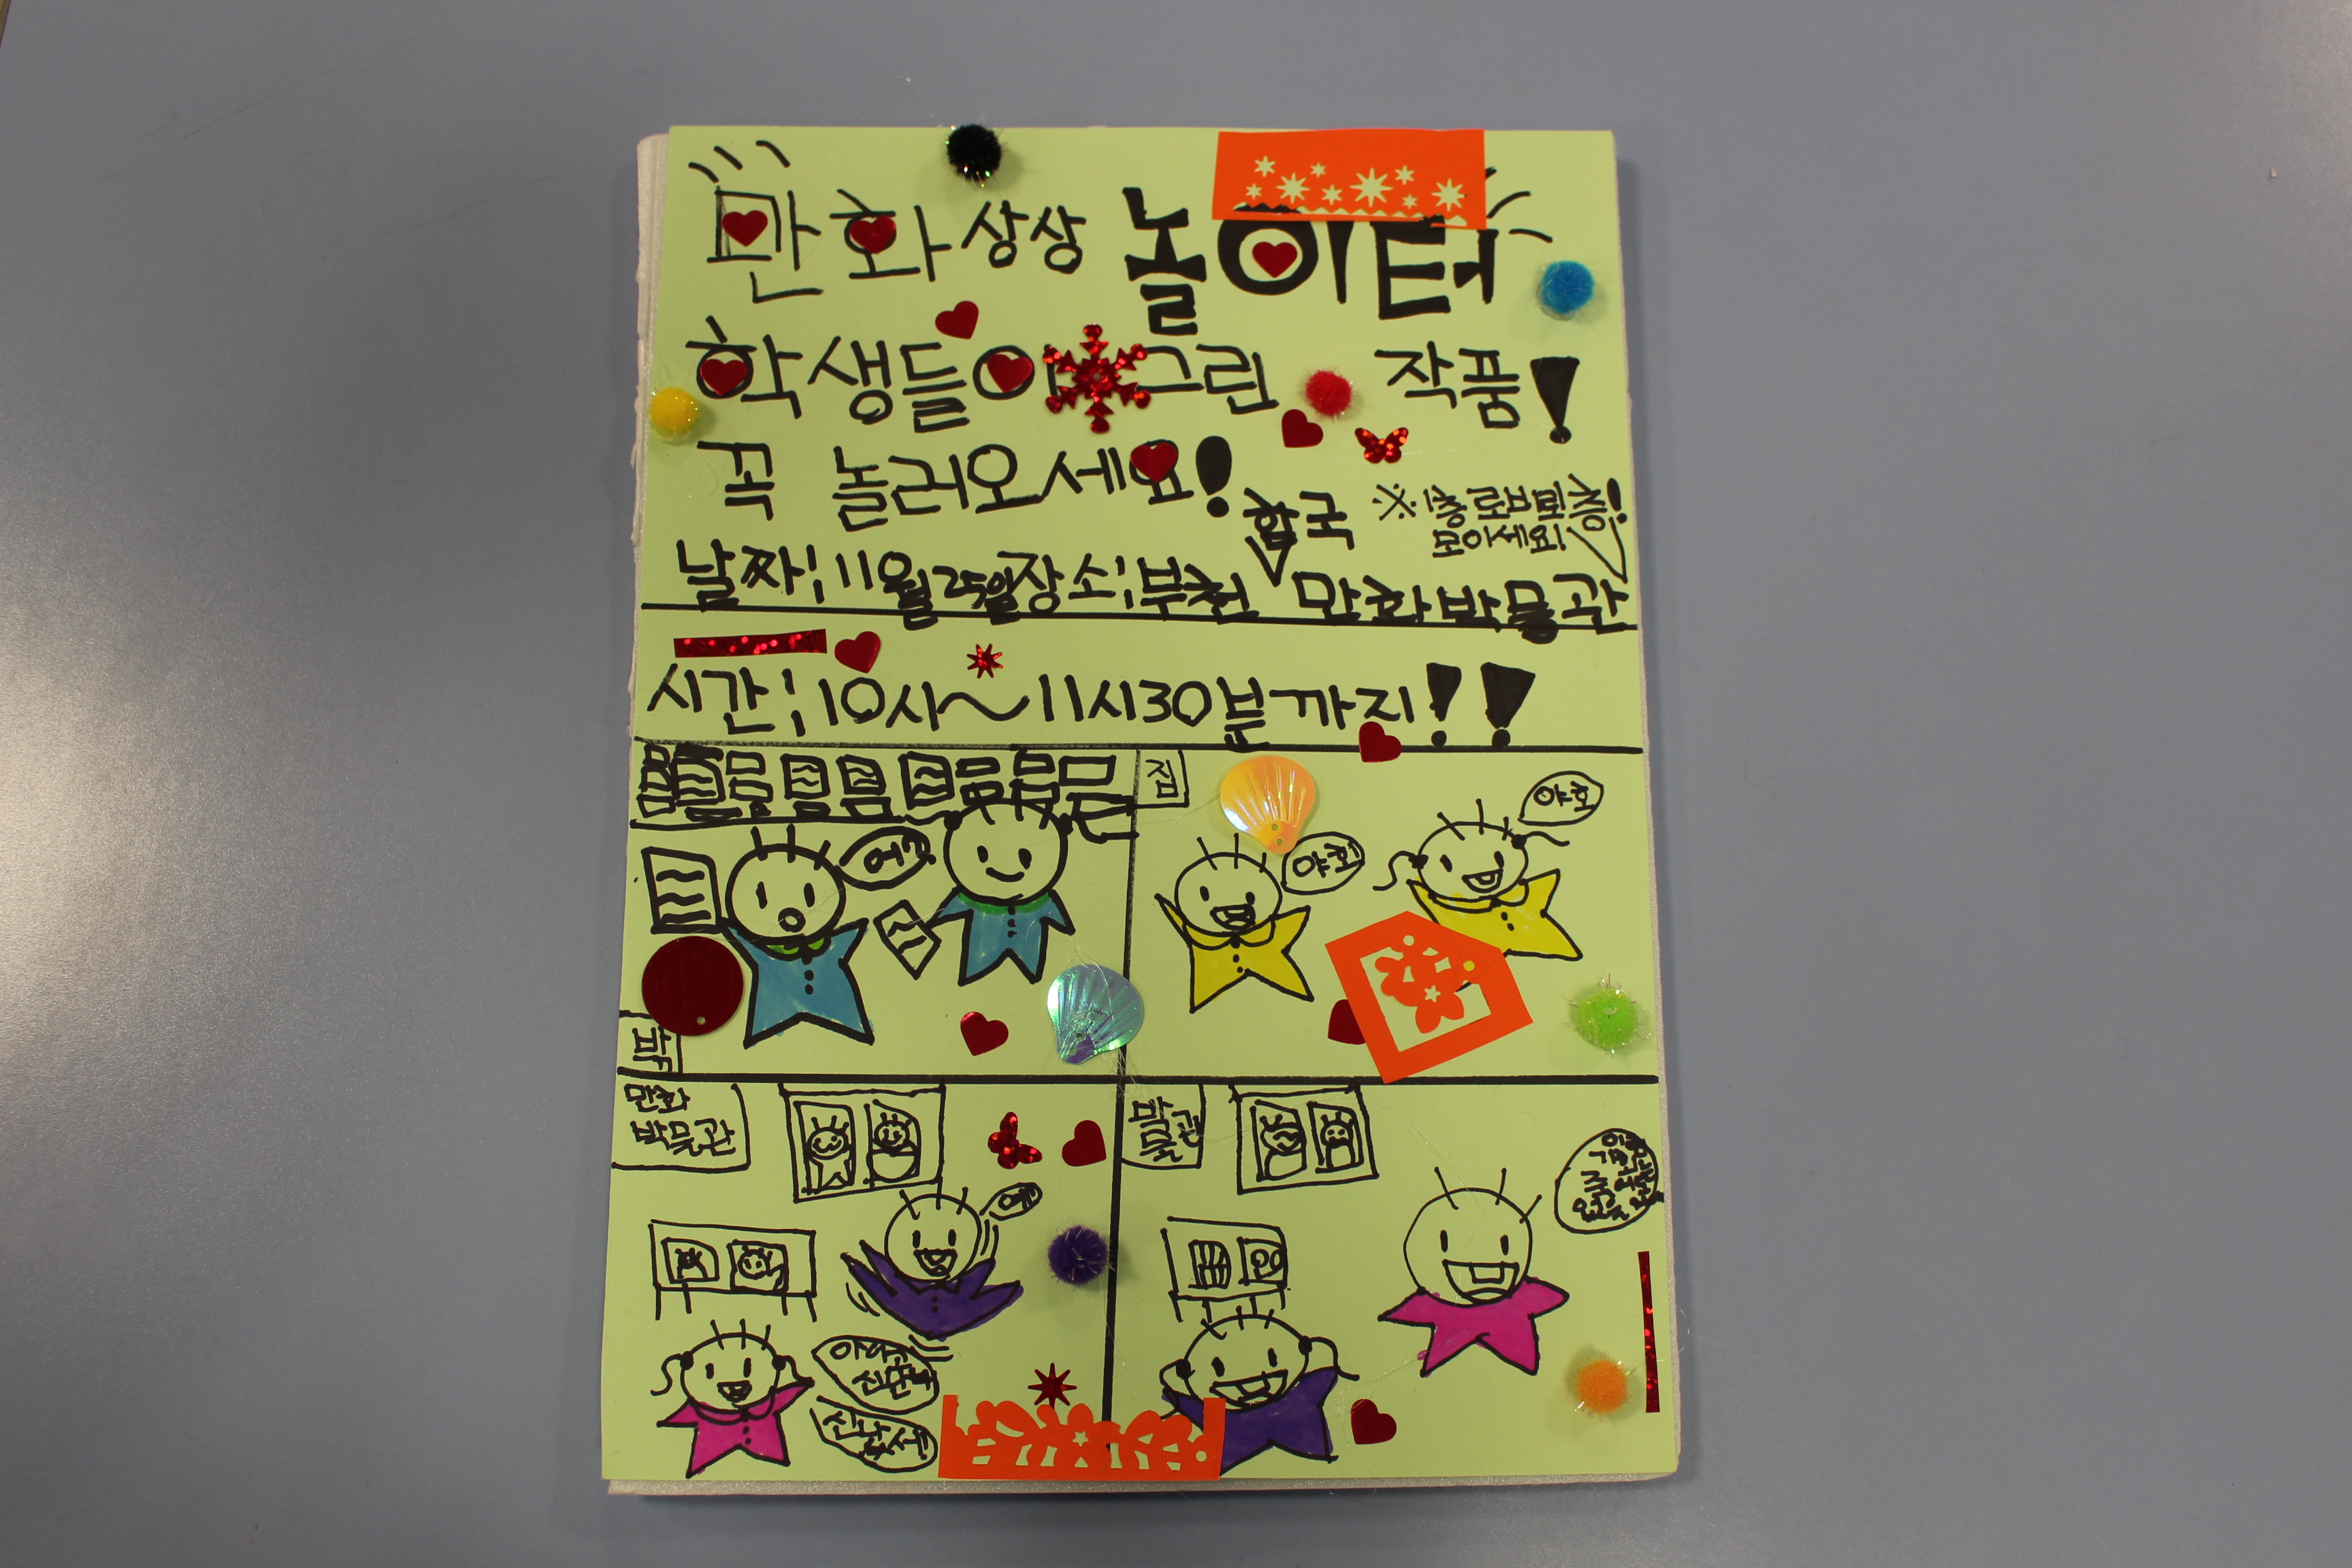 만화상상 놀이터
학생들이 그린 작품!
꼭 놀러오세요!
한국
※1층 로비 뙤층!
모이세요!
날짜:11월25일 장소:부천 만화박물관
시간:10시~11시30분까지!!
어?
박
집
야호
야호
만화
박물관
예
아이구
신난다
박
물관